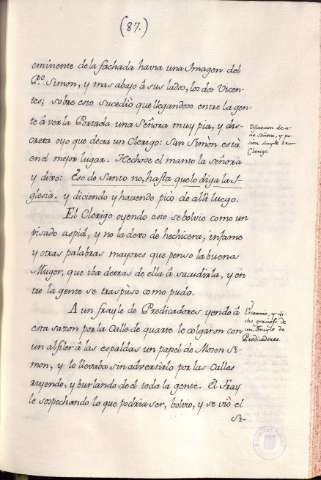 (87.)
eminente de la fachada havia una Imagen del
Pe. Simon, y mas abajo à sus lados, los dos Vicen-
tes; sobre esto sucediò que llegandose entre la gen-
te à vér la Portada una Señora muy pia, y dis-
creta oyo que decia un Clerigo: San Simon està
en el mejor lugar. Hechose el manto la señoria
y dixo: Ese de Santo no, hasta que lo diga la I-
glesia. y diciendo y haciendo picò de alli luego.
El Clerigo oyendo esto se bolvio como un
pisado aspid, y no la dexo de hechicera, infame
y otras palabras mayores que penso la buena
Muger, que iba detras de ella à sacudirla, y en-
tre la gente se traspuso como pudo.
A un frayle de Predicadores yendo à
esta sazon por la Calle de quarte le colgaron con
un alfiler à las espaldas un papel de Mosen Si-
mon, y lo llevaba sin advertirlo por las calles
riyendo, y burlando de èl toda la gente. El fray-
le sospechando lo que podria ser, bolvio, y se viò el
se-
Clerigo
un frayle de
Predicadores.